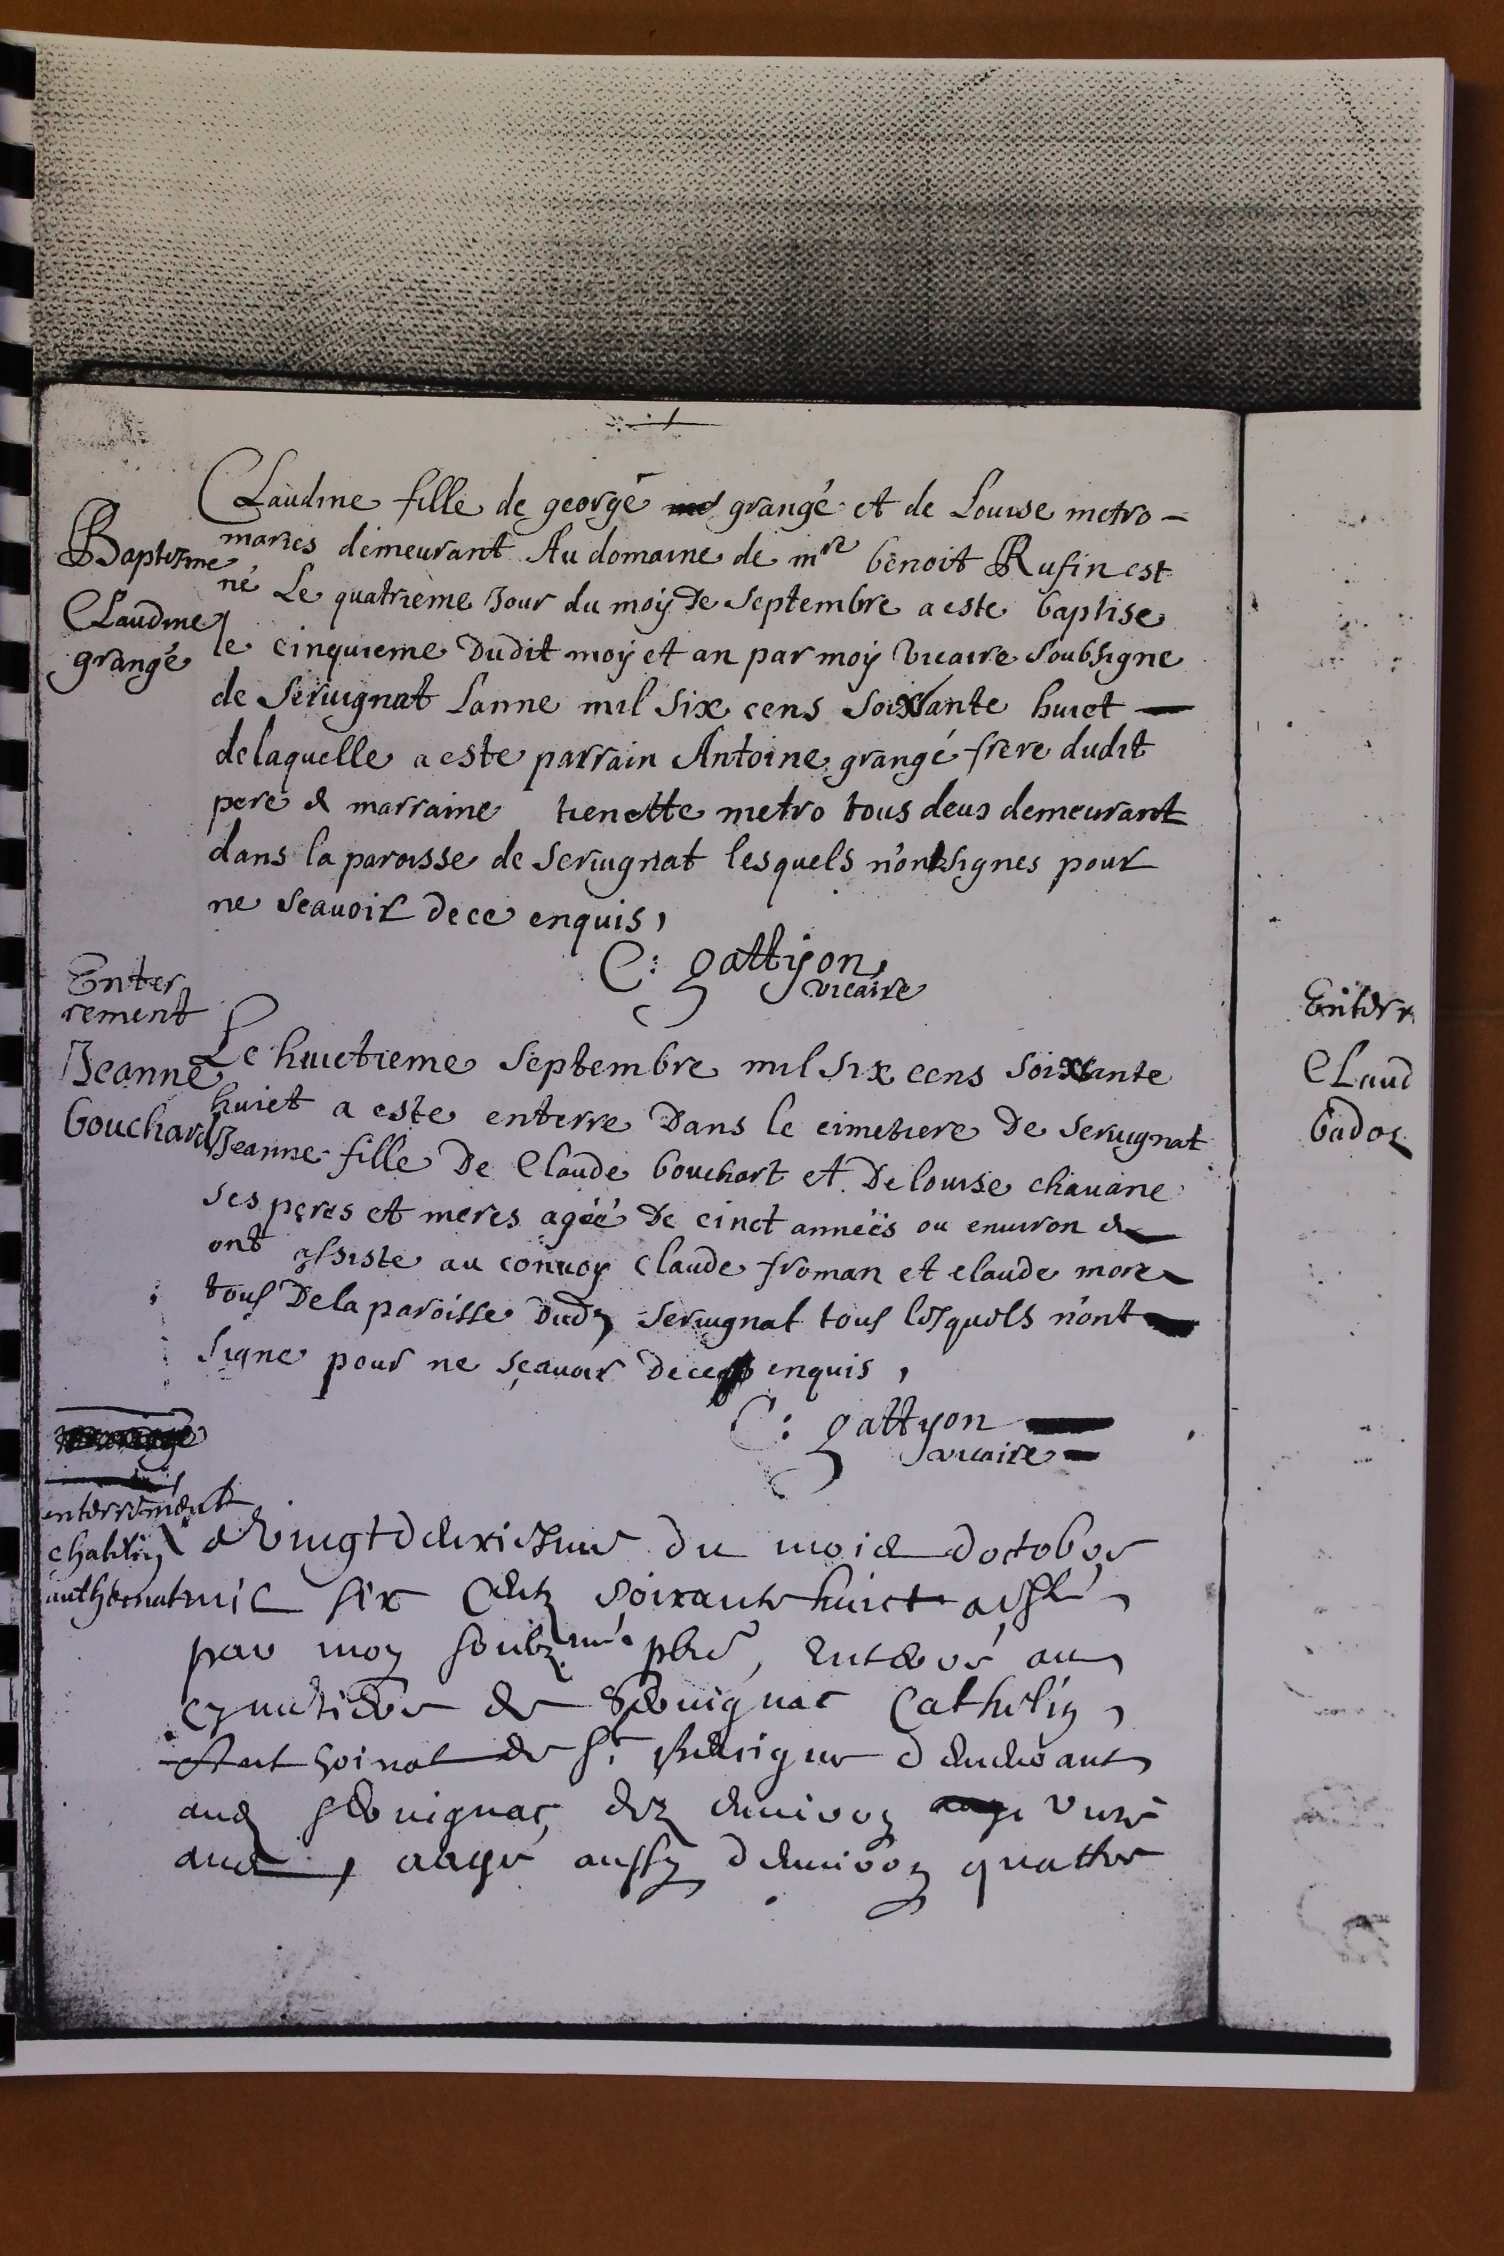 Claudine fille de georgé grangé et de Louise metro -
maries demeurant Au domaine de mre benoit Rufin est
né Le quatrieme Jour du moy De Septembre a este baptise
le cinquieme Dudit moy et an par moy vicaire Soubsigne
de Seruignat Lanne mil Six cens Soixante huict
delaquelle a este parrain Antoine grangé frere dudit
pere & marraine tienette metro tous deux demeurant
dans la paroisse de Seruignat lesquels n'ont signes pour
ne Scauoir de ce enquis,
C: gattyon,
vicaire
Baptesme
Claudine
grangé
Enter
rement
Jeanne
bouchard
Le huictieme Septembre mil Six cens Soixante
huict a este enterre Dans le cimetiere De Seruignat
Jeanne fille De Claude bouchart et De louise chauane
Ses peres et meres agéé De cinct annéés ou enuiron &
ont assiste au conuoy Claude froman et claude more
tous De la paroisse Dud Seruignat tous lesquels n'ont
Signe pour ne sçauoir De ce enquis,
C: gattyon
vicaire
enterrement
vingt deuxiesme du mois doctobre
mil six centz soixante huict a esté
par moy soubz.né pbre, enterré au
cymetiere de Seruignat Catherin
de St demeurant
aud Seruignat, dez enuiron
aagé aussy denuiron quattre
Enterr
Claud